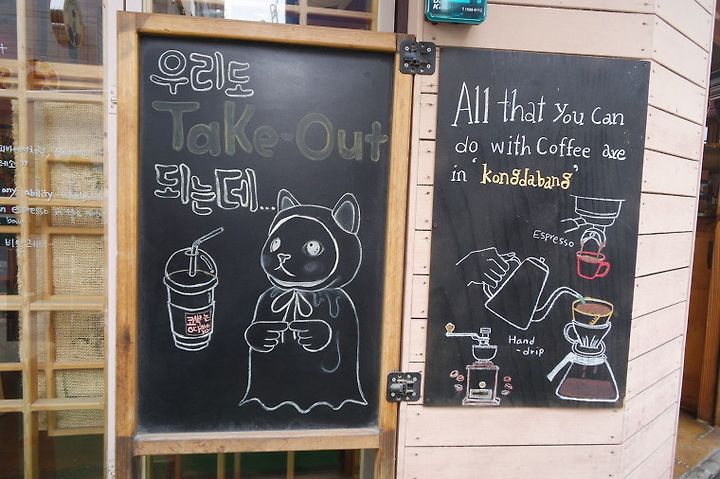 우리도
Take-Out
되는데...
All that you can
do with Coffee are
in 'kongdabang'
Espresso
Hand
-drip
any ability
espresso in the